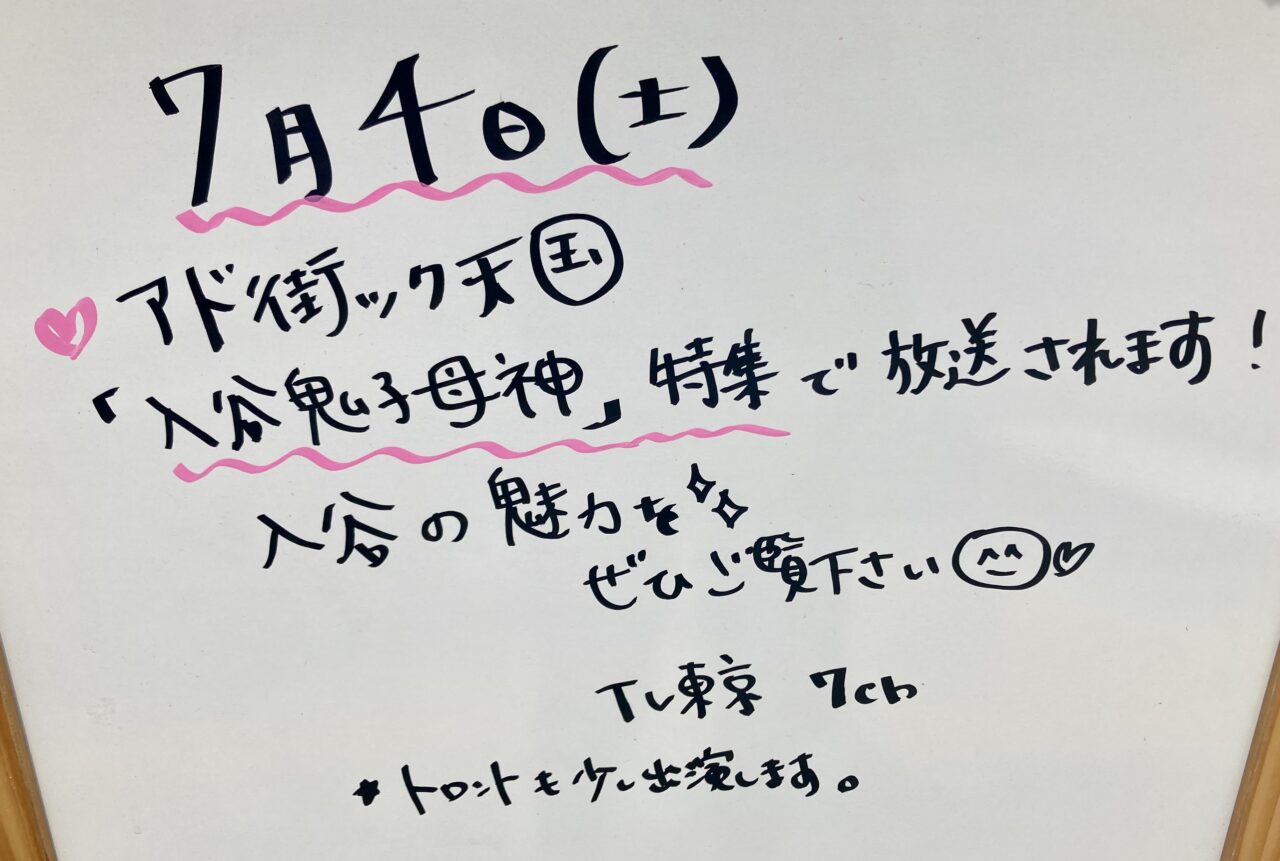 7月4日(土)
♥アド街ック天国
「入谷鬼子母神」特集で放送されます!
入谷の魅力を
ぜひご覧下さい
TV東京 7ch
★トロントも少し出演します。